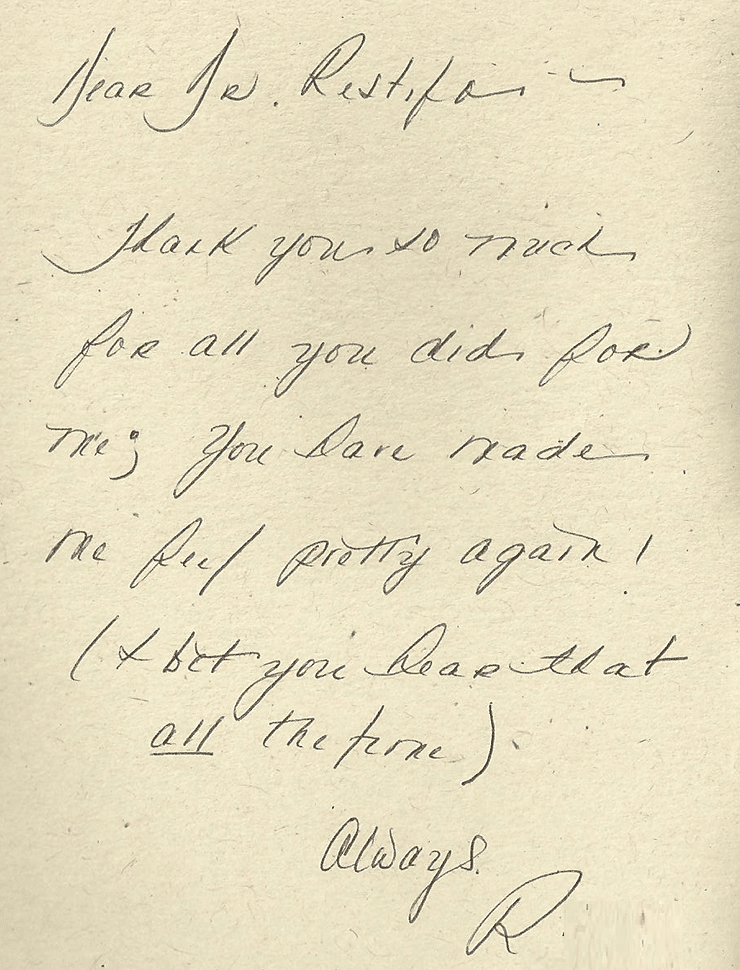 Dear Dr. Restifo -
Thank you so much
for all you did for
me; You have made
me feel pretty again!
(I bet you hear that
all the time)
Always
R